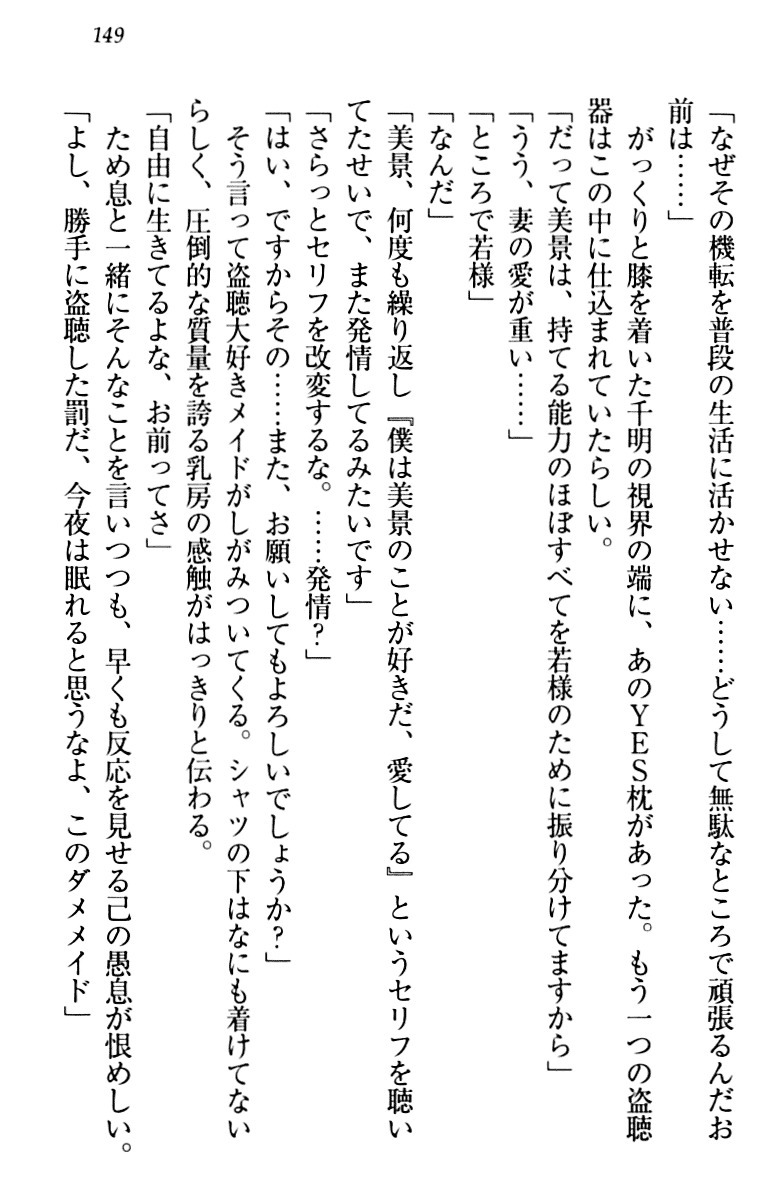 149
「なぜその機転を普段の生活に活かせない……どうして無駄なところで頑張るんだお
前は……」
がっくりと膝を着いた千明の視界の端に、あのＹＥＳ枕があった。もう一つの盗聴
器はこの中に仕込まれていたらしい。
「だって美景は、持てる能力のほぼすべてを若様のために振り分けてますから」
「うう、妻の愛が重い……」
「ところで若様」
「なんだ」
「美景、何度も繰り返し『僕は美景のことが好きだ、愛してる』というセリフを聴い
てたせいで、また発情してるみたいです」
「さらっとセリフを改変するな。……発情？」
「はい、ですからその……また、お願いしてもよろしいでしょうか？」
そう言って盗聴大好きメイドがしがみついてくる。シャツの下はなにも着けてない
らしく、圧倒的な質量を誇る乳房の感触がはっきりと伝わる。
「自由に生きてるよな、お前ってさ」
ため息と一緒にそんなことを言いつつも、早くも反応を見せる己の愚息が恨めしい。
「よし、勝手に盗聴した罰だ、今夜は眠れると思うなよ、このダメメイド」